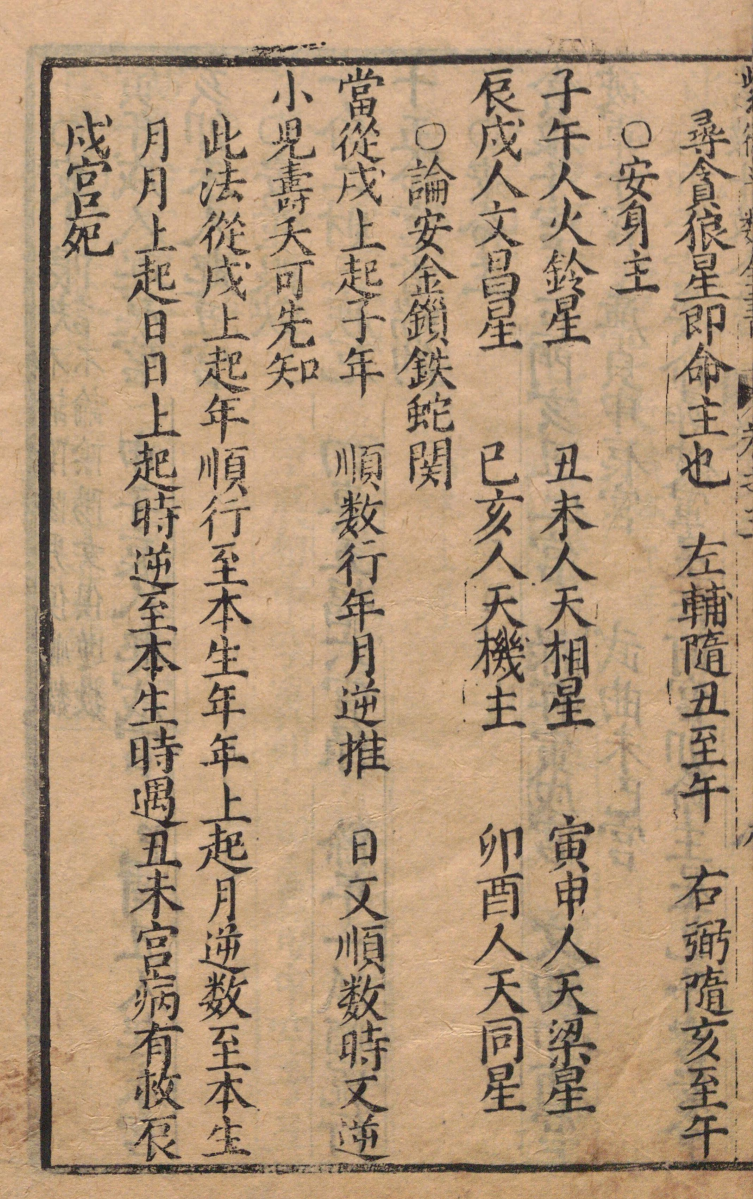 尋貪狼星即命主也　左輔隨丑至午　右弼隨亥至午
○安身主
子午人火鈴星　丑未人天相星　寅申人天梁星
辰戌人文昌星　巳亥人天機主　卯酉人天同星
○論安金鎖鉄蛇関
當從戌上起子年　順数行年月逆推　日又順数時又逆
小児壽夭可先知
此法從戌上起年順行至本生年年上起月逆数至本生
月月上起日日上起時逆至本生時遇丑未宮病有救辰
戌宮死